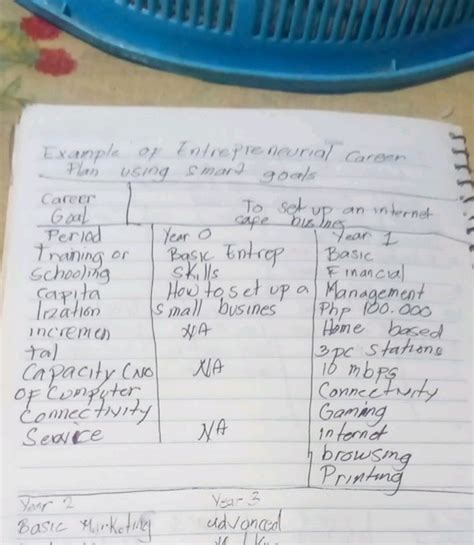 Example of Entrepreneurial Career
Plan using smart goals
Career
Goal
To set up an internet
cafe busines
Period Year 0 Year 1
Training or Basic Entrep Basic
Schooling Skills Financial
capita How to set up a Management
lization small busines Php 100.000
incremen N/A Home based
tal 3pc stations
Capacity (No N/A 10 mbps
of Computer Connectivity
Connectivity Gaming
Service N/A internet
browsing
Printing
Year 2 Year 3
Basic Marketing advanced